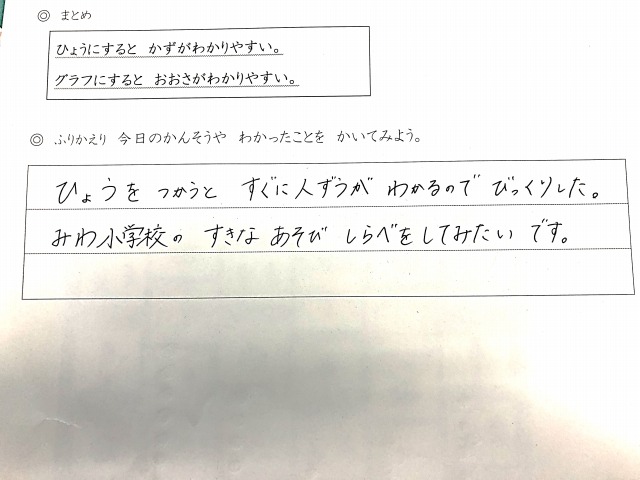 ◎ まとめ
ひょうにすると かずがわかりやすい。
グラフにすると おおさがわかりやすい。
◎ ふりかえり 今日のかんそうや わかったことを かいてみよう。
ひょうを つかうと すぐに人ずうが わかるので びっくりした。
みわ小学校の すきな あそび しらべをしてみたい です。